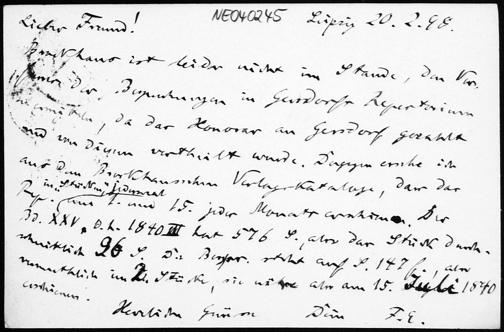 NE040245 Leipzig 20. 2. 98.
Lieber Freund!
Brockhaus ist leider nicht im Stande, den Ver-
der Besprechungen in Gersdorfs Repertorium
zu ermitteln, da das Honorar an Gersdorf gezahlt
und von diesem vertheilt wurde. Dagegen ersehe ich
aus dem Brockhausschen Verlagskataloge, dass das
Rep. in Stücken jedesmal am 1. und 15. jedes Monats erschienen. Der
Bd. XXV, d. h. 1840 III hat 576 S., also das Stück durch-
schnittlich 96 S. Die Bespr. steht auf S. 147 f., also
vermuthlich im 2. Stücke, sie wäre also am 15. Juli 1840
erschienen.
Herzlichen Gruss Dein F. E.